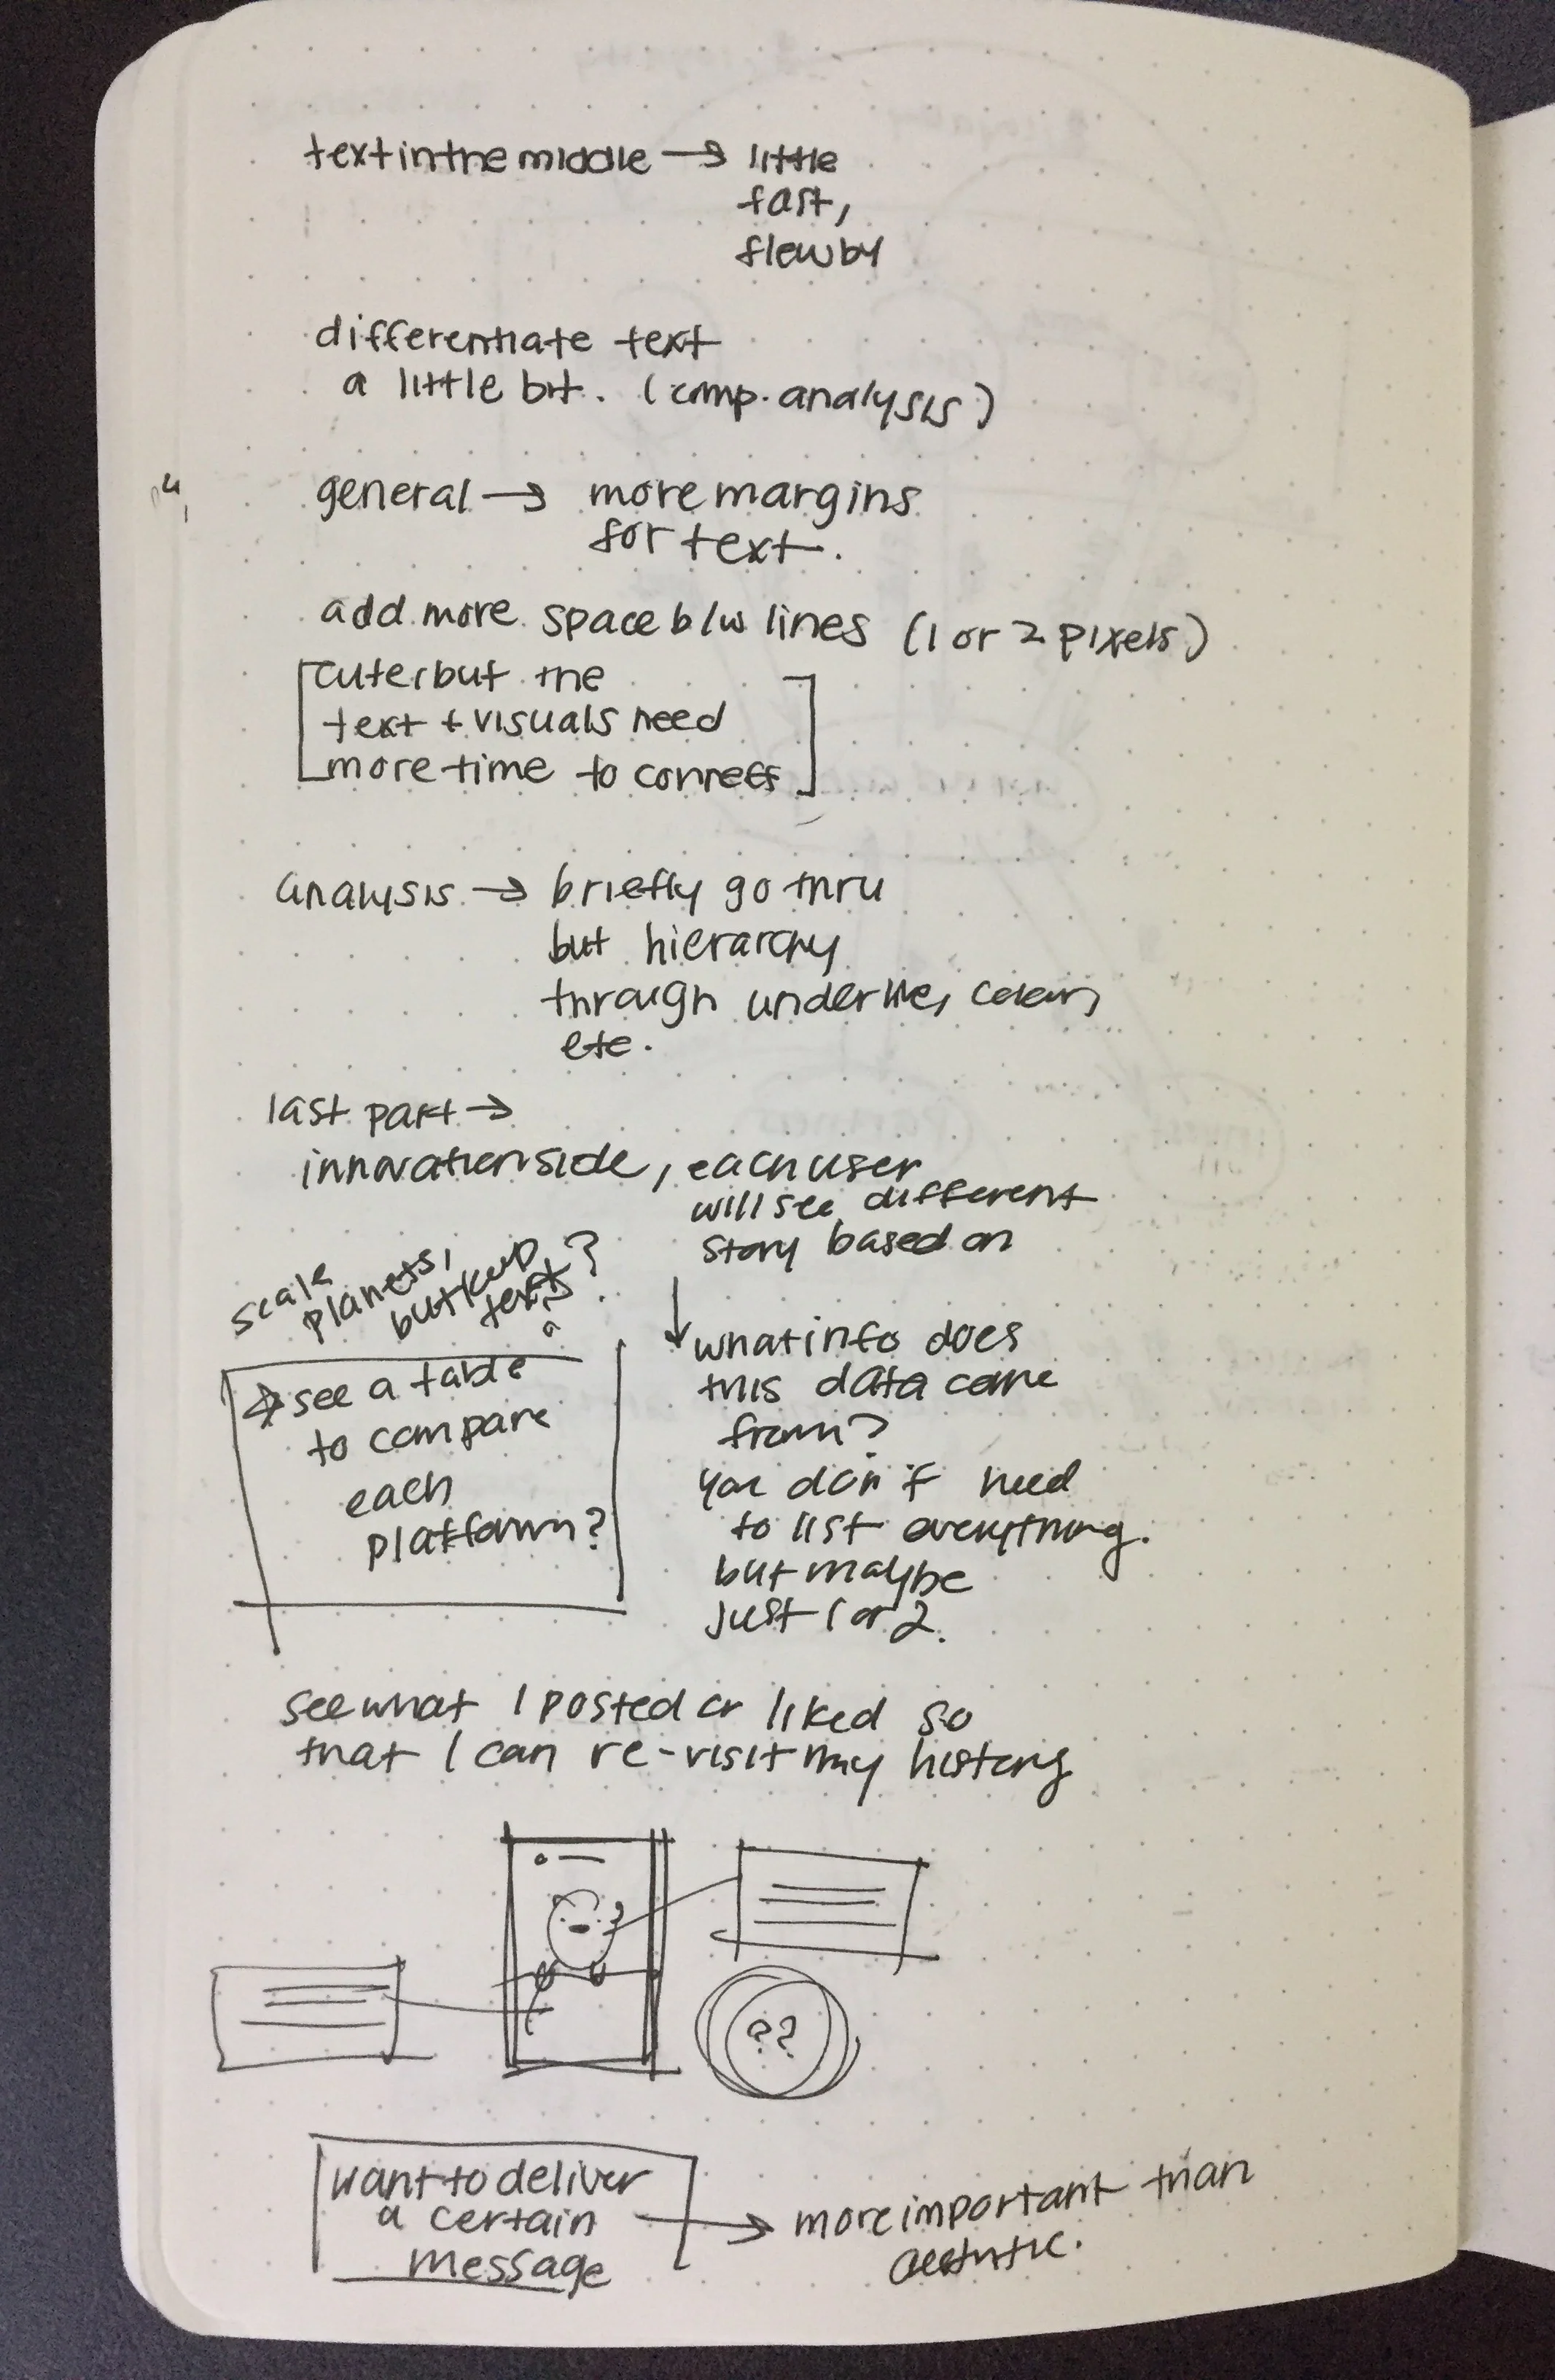 text in the middle → little
fast,
flew by
differentiate text
a little bit. (comp. analysis)
general → more margins
for text.
add more space b/w lines (1 or 2 pixels)
cuter but the
text + visuals need
more time to connect
analysis → briefly go thru
but hierarchy
through underline, colors,
etc.
last part →
innovation side, each user
will see different
story based on
scale
planets,
but keep
text?
see a table
to compare
each
platform?
↓ what info does
this data come
from?
you don't need
to list everything.
but maybe
just 1 or 2.
see what I posted or liked so
that I can re-visit my history
??
want to deliver
a certain
message
→ more important than
aesthetic.